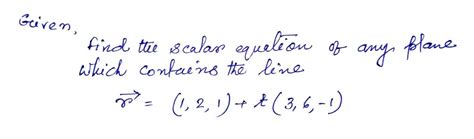 Given,
find the scalar equetion of any plane
which contains the line
r⃗ = (1, 2, 1) + t (3, 6, -1)